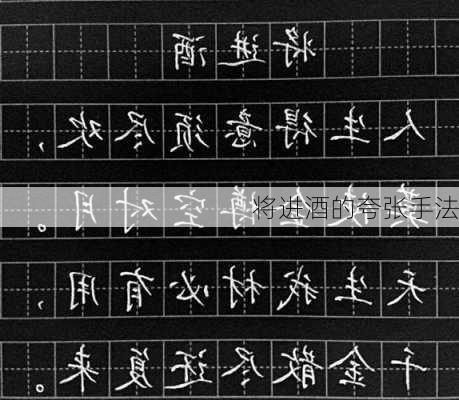 将进酒
人生得意须尽欢，
莫使金樽空对月。
将进酒的夸张手法
天生我材必有用，
千金散尽还复来。